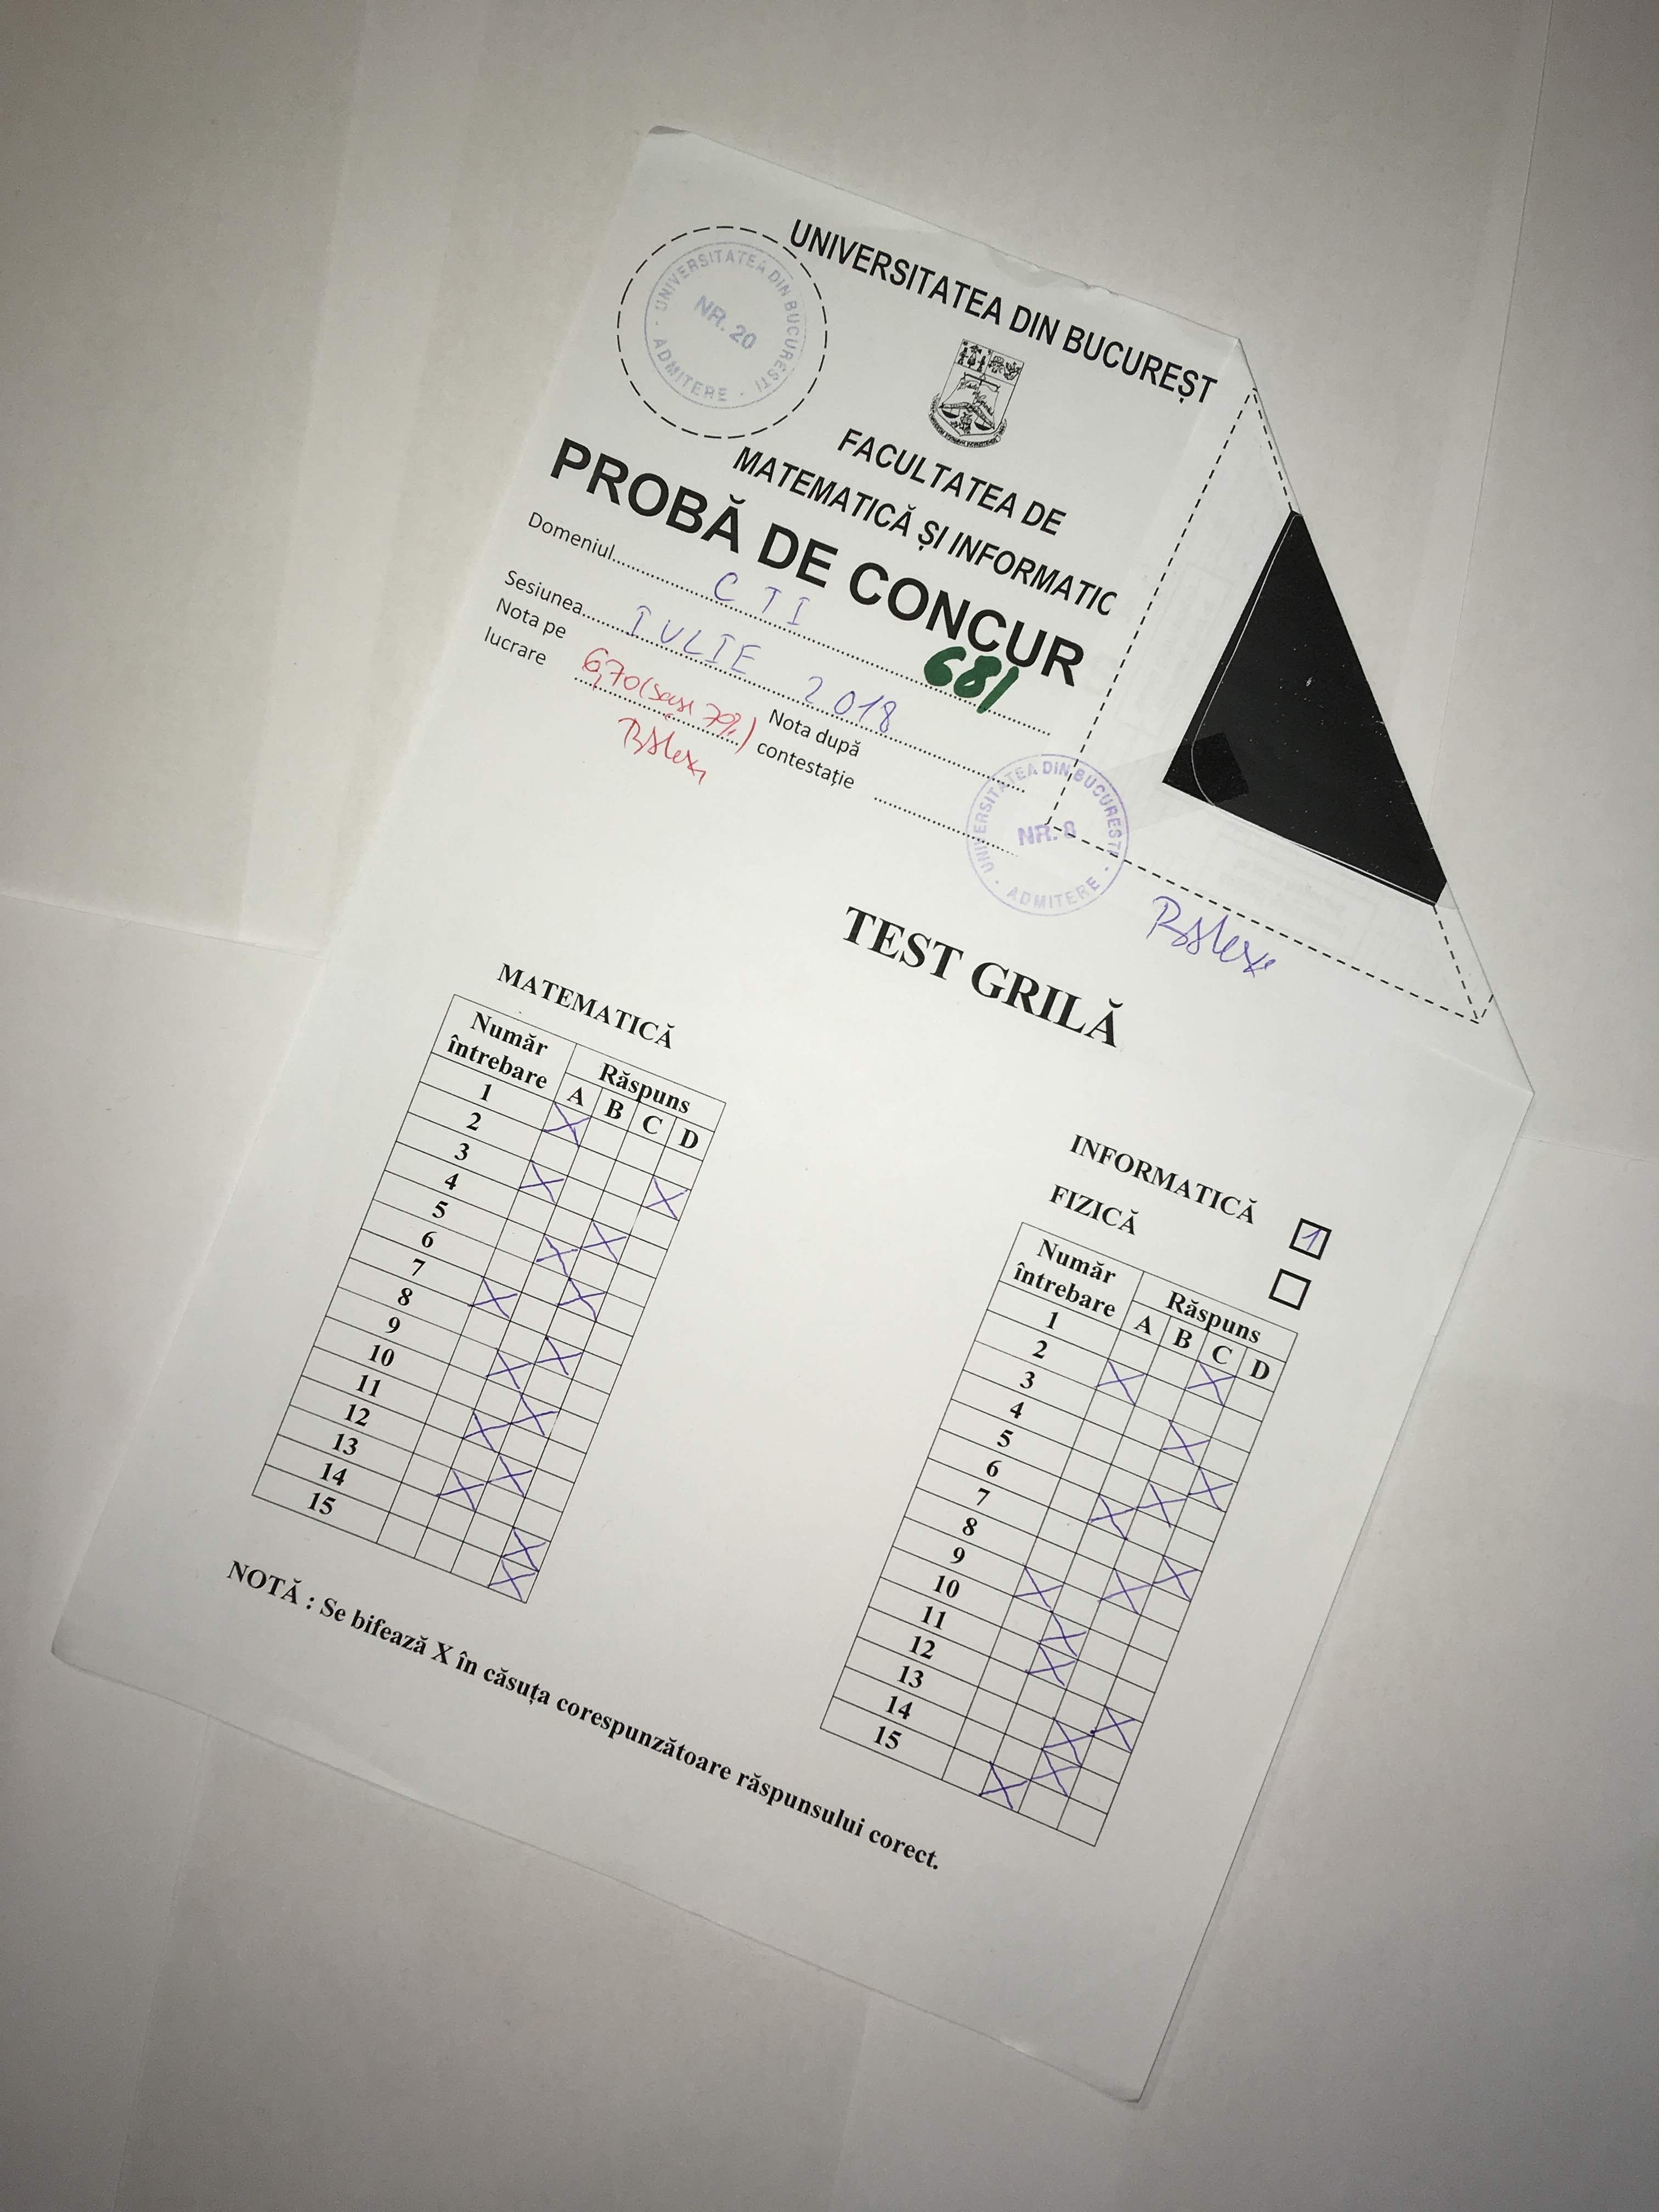 UNIVERSITATEA DIN BUCUREȘT
UNIVERSITATEA DIN BUCUREȘTI · ADMITERE ·
NR. 20
FACULTATEA DE
MATEMATICĂ ȘI INFORMATIC
PROBĂ DE CONCUR
Domeniul CTI
681
Sesiunea IULIE 2018
Nota pe
lucrare
6,70 (șase 70%)
Nota după
contestație
UNIVERSITATEA DIN BUCUREȘTI · ADMITERE ·
NR. 8
TEST GRILĂ
MATEMATICĂ
Număr
întrebare
Răspuns
A B C D
1 X
2
3 X X
4
5 X X
6
7 X X
8
9 X X
10
11 X X
12
13 X X
14 X
15 X
INFORMATICĂ 1
FIZICĂ
Număr
întrebare
Răspuns
A B C D
1
2 X X
3
4 X
5 X
6 X X
7
8
9 X X X
10 X
11 X
12
13 X X
14 X
15 X
NOTĂ : Se bifează X în căsuța corespunzătoare răspunsului corect.